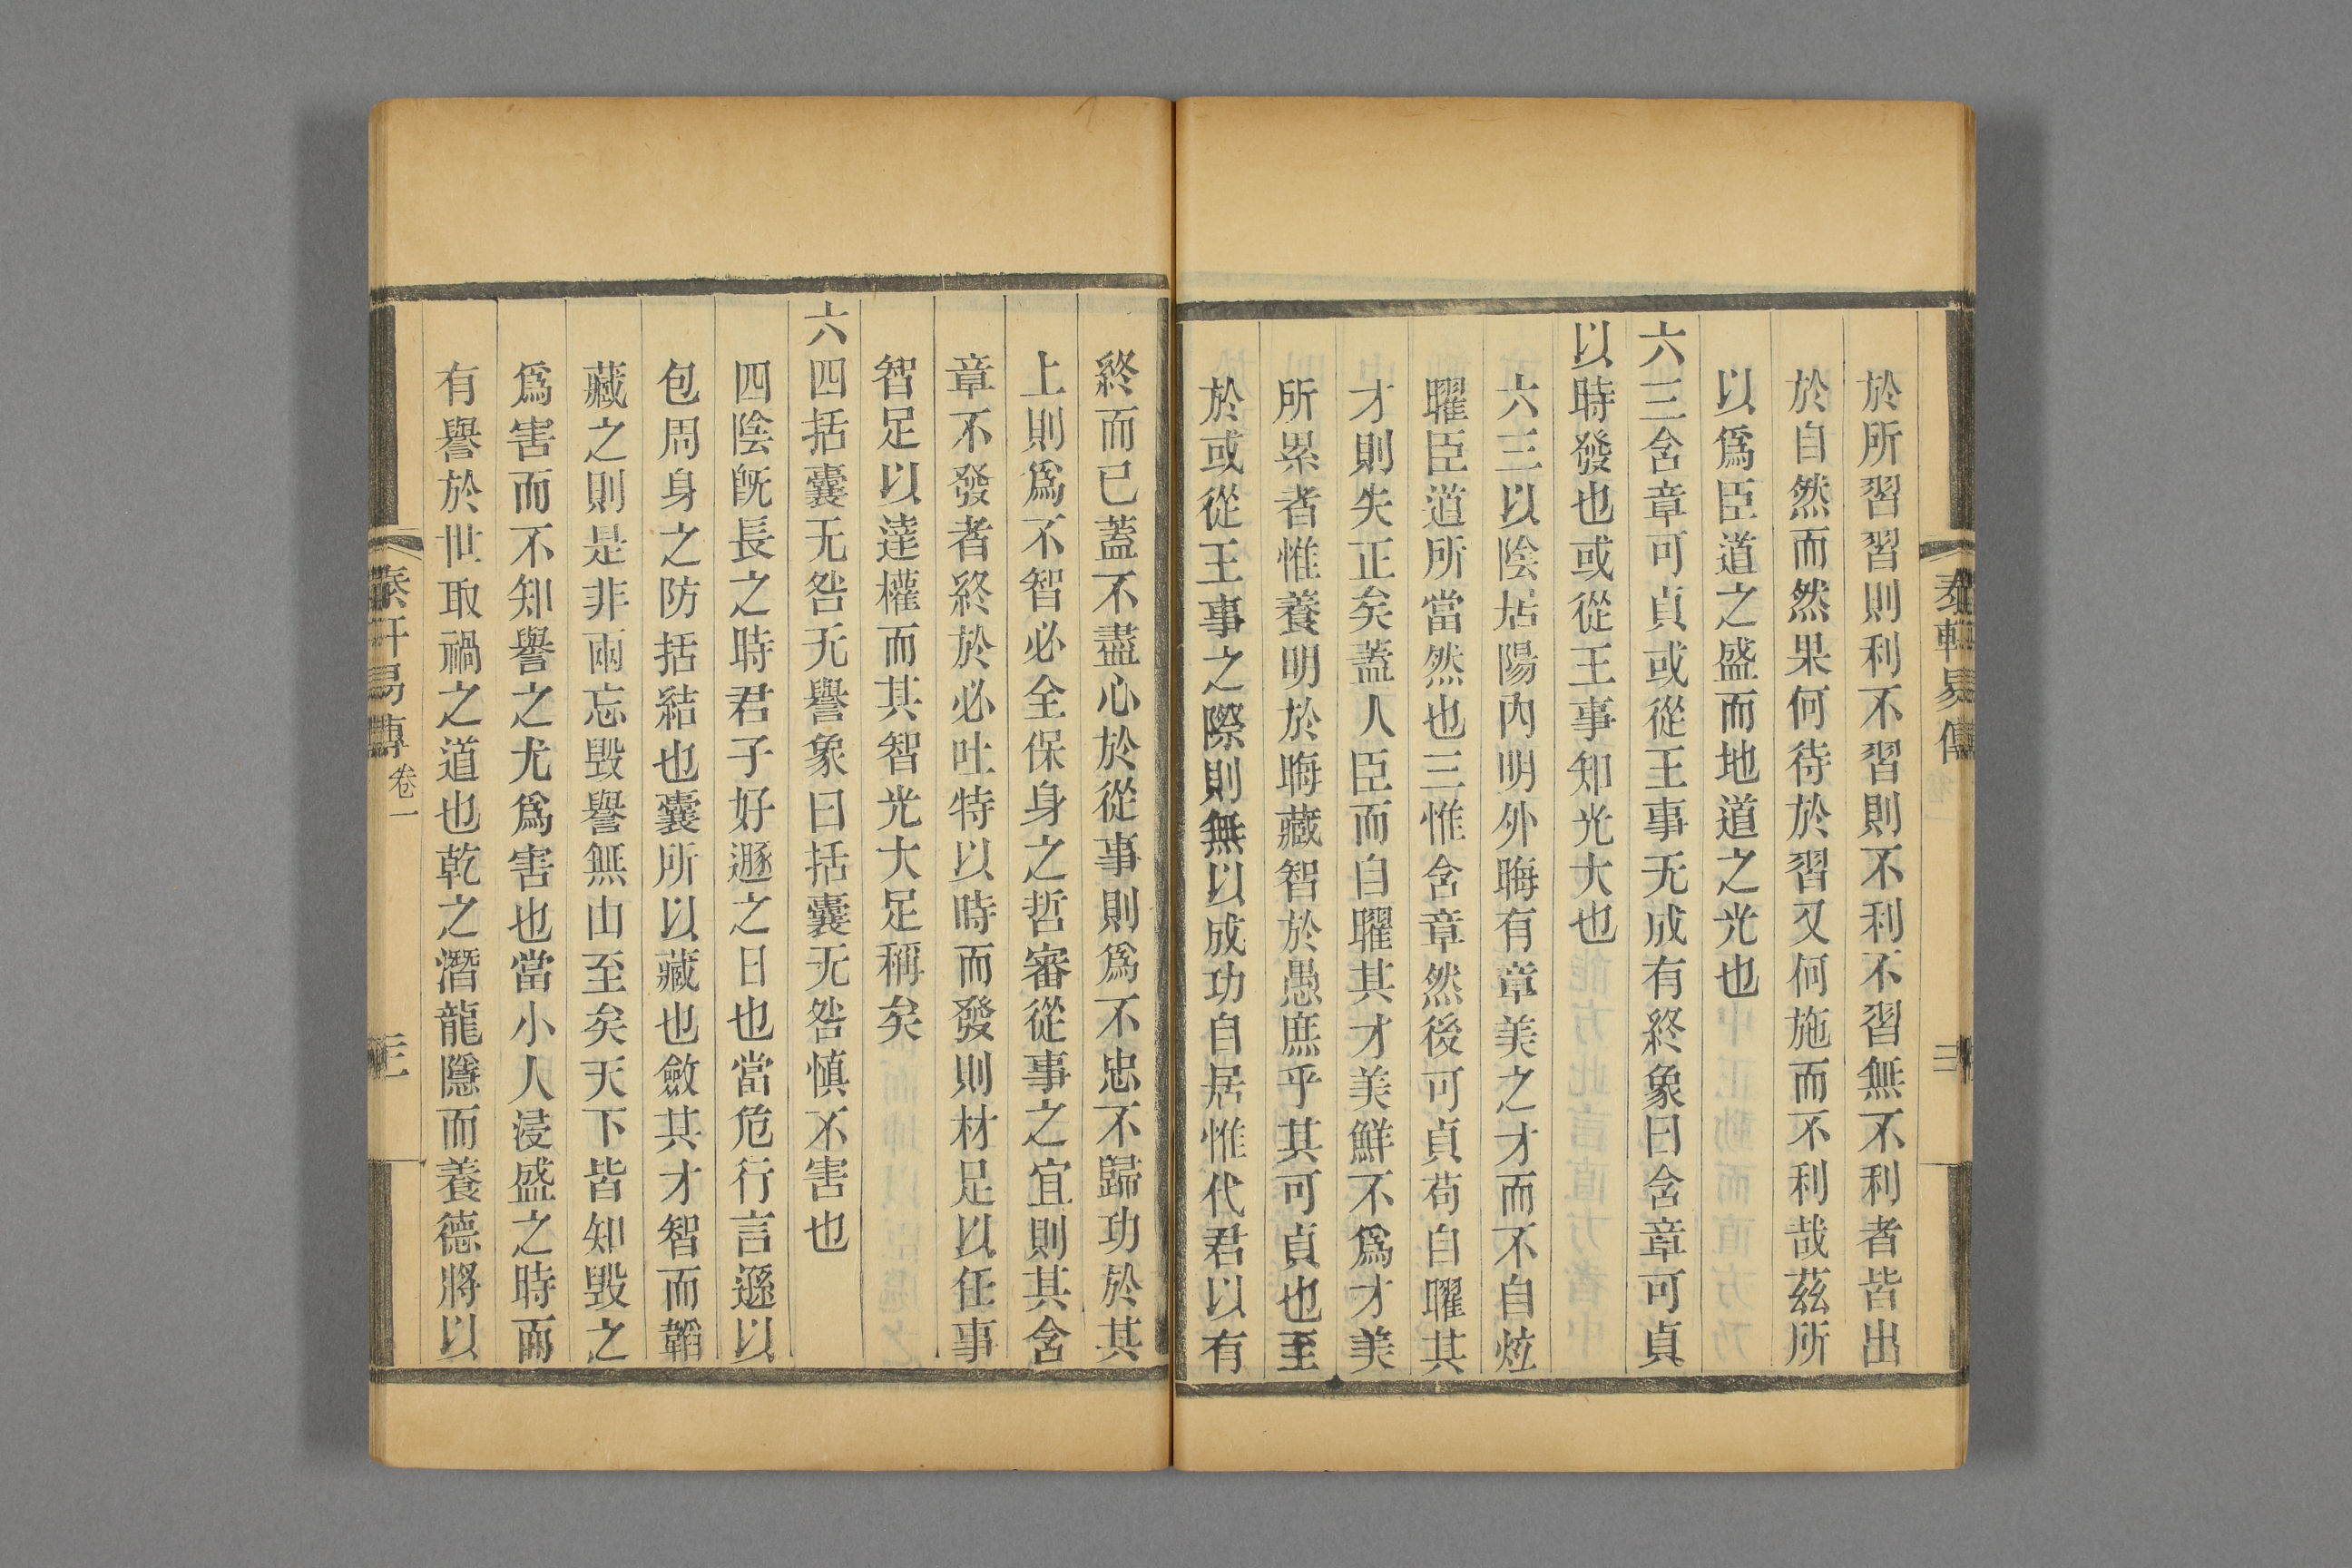 於所習習則利不習則不利不習無不利者皆出
於自然而然果何待於習又何施而不利哉茲所
以爲臣道之盛而地道之光也
六三含章可貞或從王事无成有終象曰含章可貞
以時發也或從王事知光大也
六三以陰居陽內明外晦有章美之才而不自炫
耀臣道所當然也三惟含章然後可貞苟自耀其
才則失正矣蓋人臣而自耀其才美鮮不爲才美
所累者惟養明於晦藏智於愚庶乎其可貞也至
於或從王事之際則無以成功自居惟代君以有
終而已蓋不盡心於從事則爲不忠不歸功於其
上則爲不智必全保身之哲審從事之宜則其含
章不發者終於必吐特以時而發則材足以任事
智足以達權而其智光大足稱矣
六四括囊无咎无譽象曰括囊无咎慎不害也
四陰旣長之時君子好遯之日也當危行言遜以
包周身之防括結也囊所以藏也斂其才智而韜
藏之則是非兩忘毀譽無由至矣天下皆知毀之
爲害而不知譽之尤爲害也當小人浸盛之時而
有譽於世取禍之道也乾之潛龍隱而養德將以
易傳
卷一